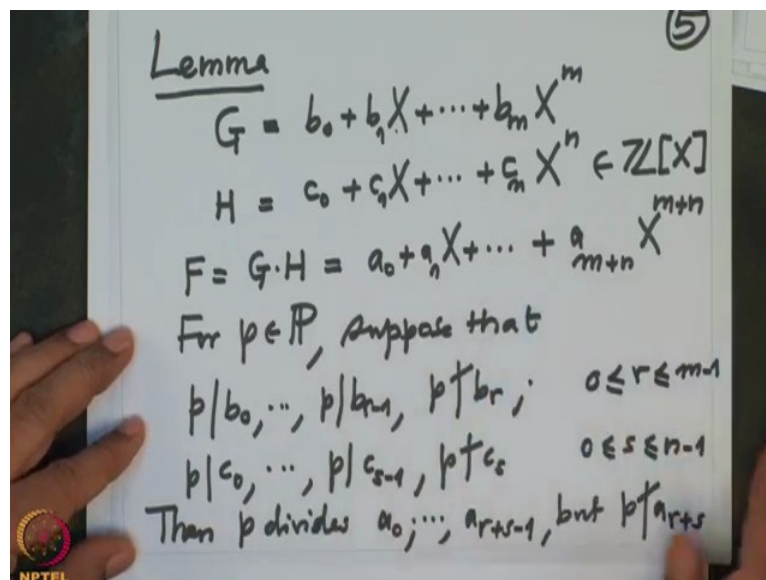 ⑤
Lemma
G = b₀ + b₁X + ⋯ + bₘ Xᵐ
H = c₀ + c₁X + ⋯ + cₙ Xⁿ ∈ ℤ[X]
F = G·H = a₀ + a₁X + ⋯ + aₘ₊ₙ Xᵐ⁺ⁿ
For p ∈ ℙ, suppose that
p|b₀, ⋯, p|bᵣ₋₁, p∤bᵣ ; 0 ≤ r ≤ m-1
p|c₀, ⋯, p|cₛ₋₁, p∤cₛ 0 ≤ s ≤ n-1
Then p divides a₀, ⋯, aᵣ₊ₛ₋₁, but p∤aᵣ₊ₛ
NPTEL